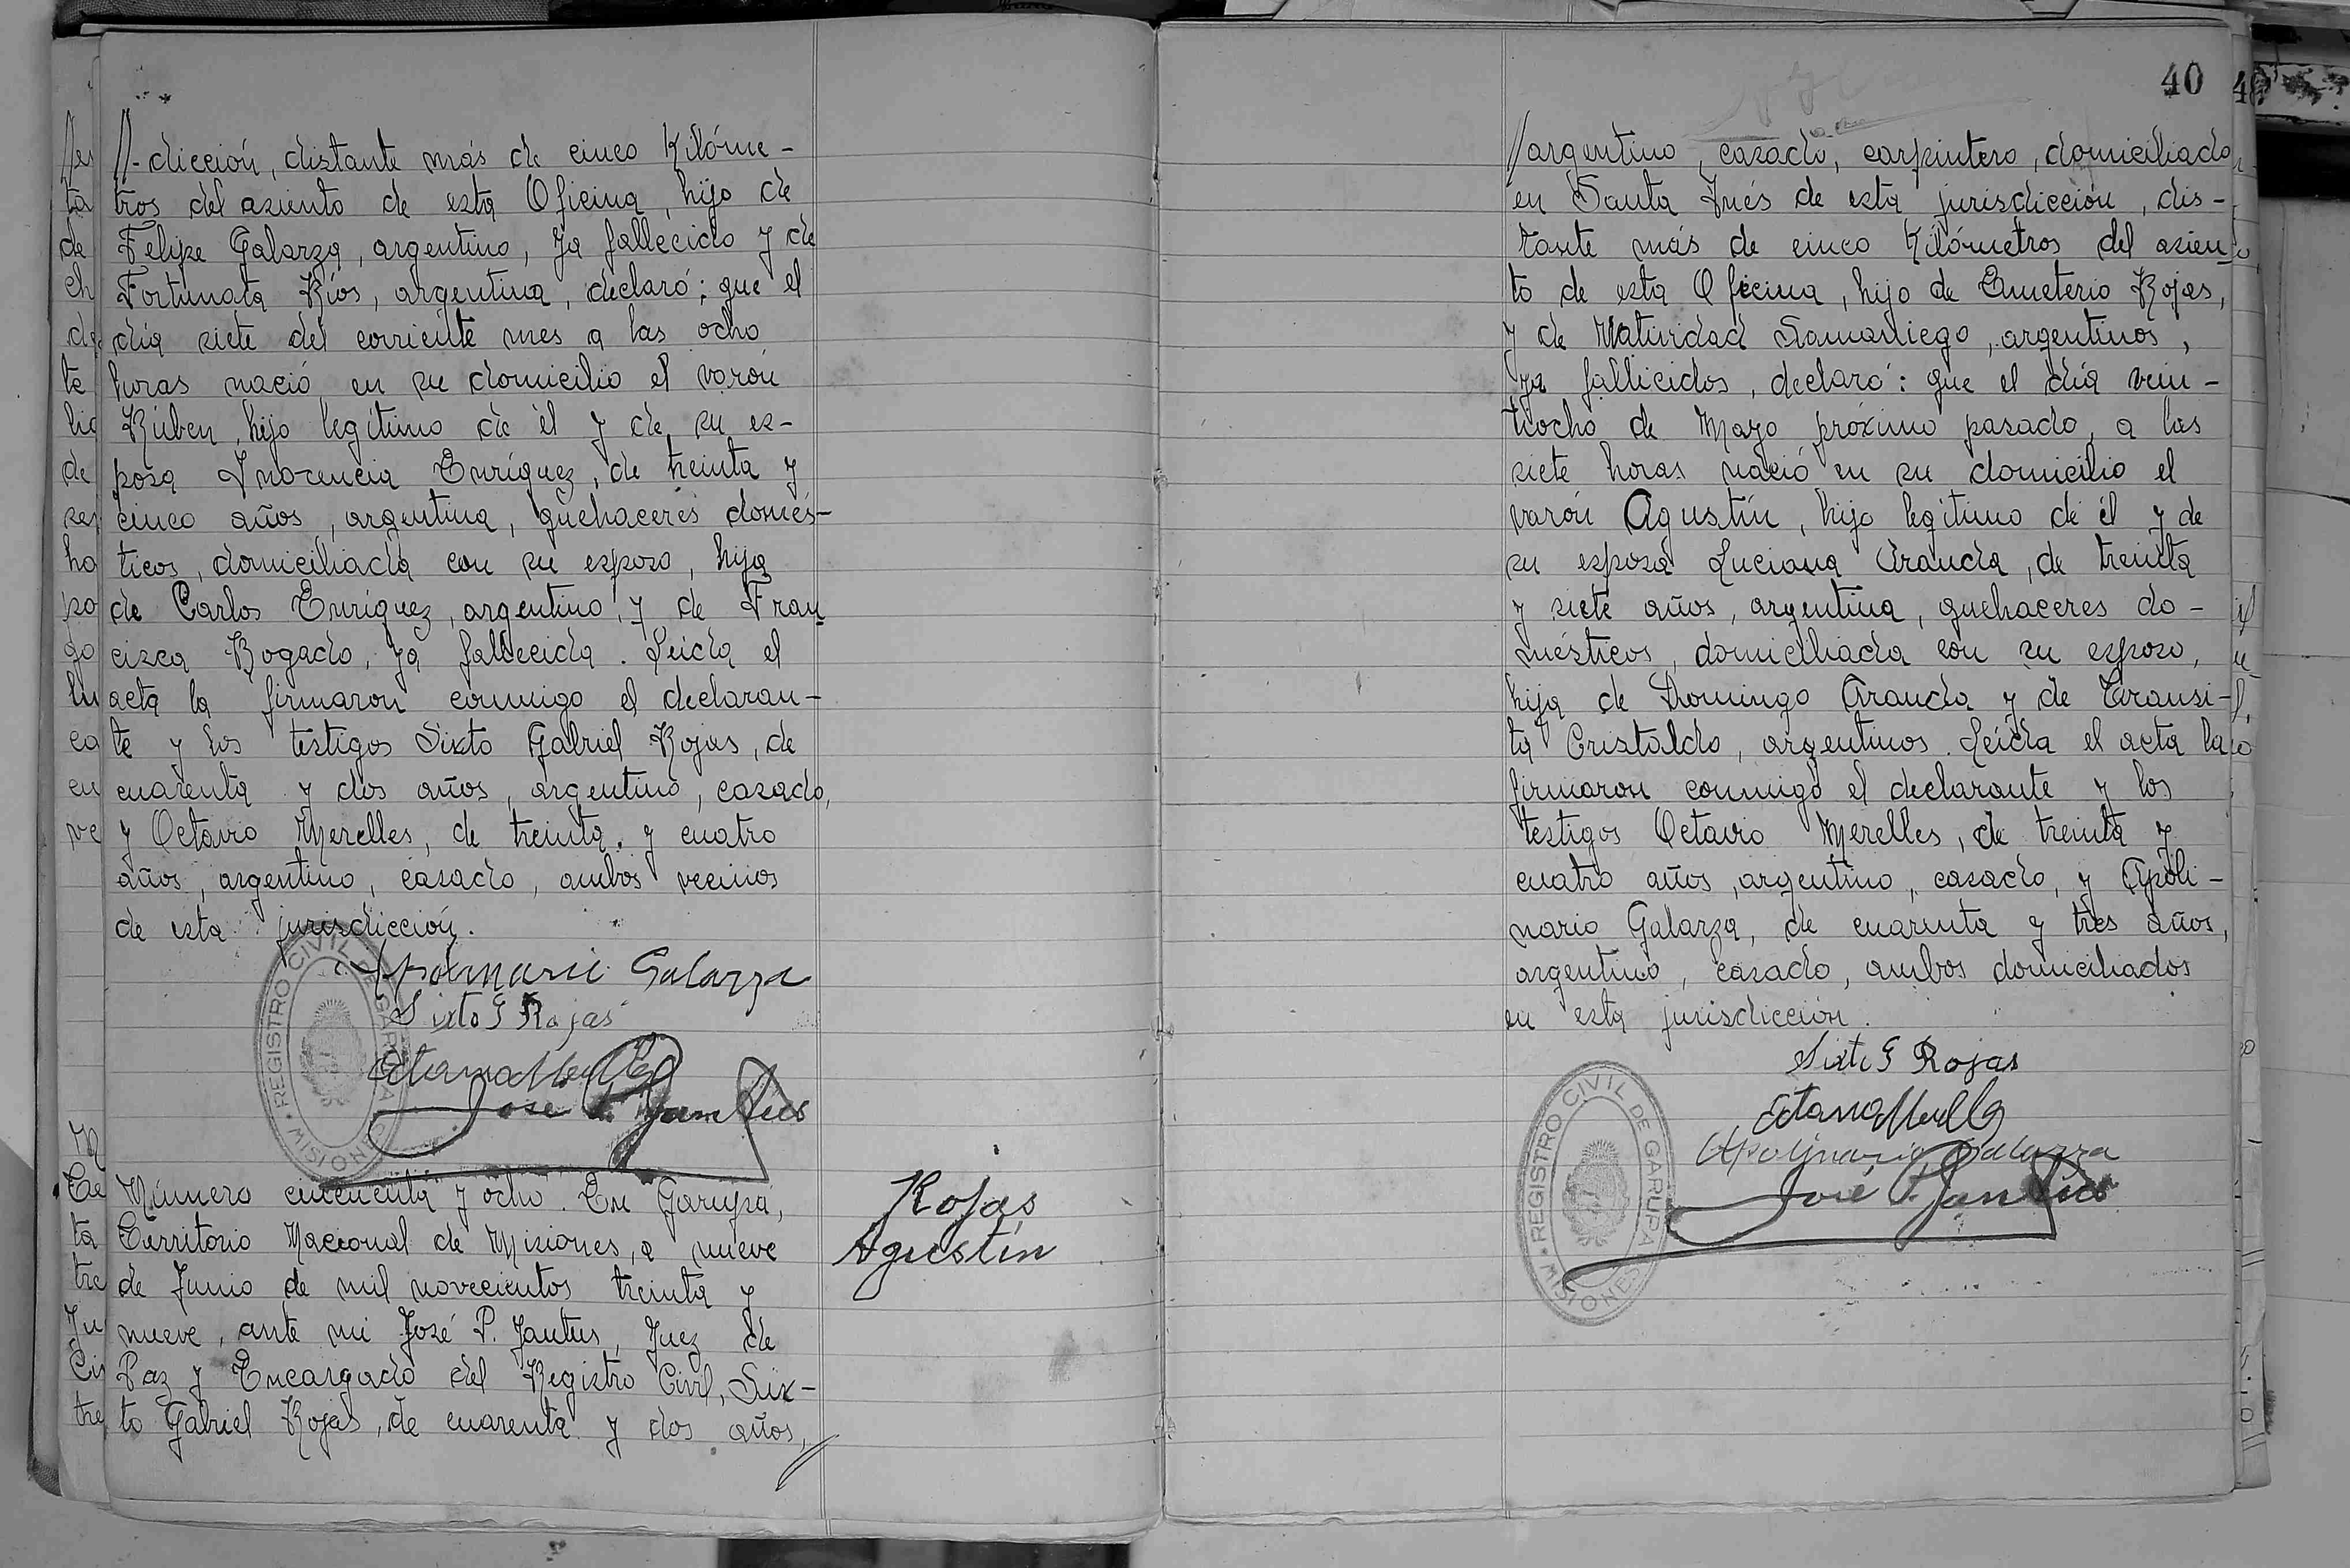 //-dicción, distante más de cinco Kilóme-
tros del asiento de esta Oficina, hijo de
Felipe Galarza, argentino, ya fallecido y de
Fortunata Ríos, argentina, declaró: que el
día siete del corriente mes a las ocho
horas nació en su domicilio el varón
Rúben, hijo legítimo de él y de su es-
posa Inocencia Enríquez, de treinta y
cinco años, argentina, quehaceres domés-
ticos, domiciliada con su esposo, hija
de Carlos Enríquez, argentino, y de Fran
cisca Bogado, ya fallecida. Leída el
acta la firmaron conmigo el declaran-
te y los testigos Sixto Gabriel Rojas, de
cuarenta y dos años, argentino, casado,
y Octavio Merelles, de treinta y cuatro
años, argentino, casado, ambos vecinos
de esta jurisdicción.
Apolinario Galarza
Sixto G Rojas
REGISTRO CIVIL DE GARUPA
MISIONES
José P. Jantus
Número cincuenta y ocho. En Garupá,
Territorio Nacional de Misiones, a nueve
de Junio de mil novecientos treinta y
nueve, ante mi José P. Jantus, Juez de
Paz y Encargado del Registro Civil, Six-
to Gabriel Rojas, de cuarenta y dos años,//
Rojas
Agustín
40
//argentino, casado, carpintero, domiciliado
en Santa Inés de esta jurisdicción, dis-
tante más de cinco Kilómetros del asien
to de esta Oficina, hijo de Emeterio Rojas,
y de Natividad Samaniego, argentinos,
ya fallicidos, declaró: que el día vein-
tiocho de Mayo próximo pasado, a las
siete horas nació en su domicilio el
varón Agustín, hijo legítimo de él y de
su esposa Luciana Aranda, de treinta
y siete años, argentina, quehaceres do-
mésticos, domiciliada con su esposo,
hija de Domingo Aranda y de Transi-
ta Cristaldo, argentinos. Leída el acta la
firmaron conmigo el declarante y los
testigos Octavio Merelles, de treinta y
cuatro años, argentino, casado, y Apoli-
nario Galarza, de cuarenta y tres años,
argentino, casado, ambos domiciliados
en esta jurisdicción.
Sixto G Rojas
Apolinario Galarza
José P. Jantus
REGISTRO CIVIL DE GARUPA
MISIONES